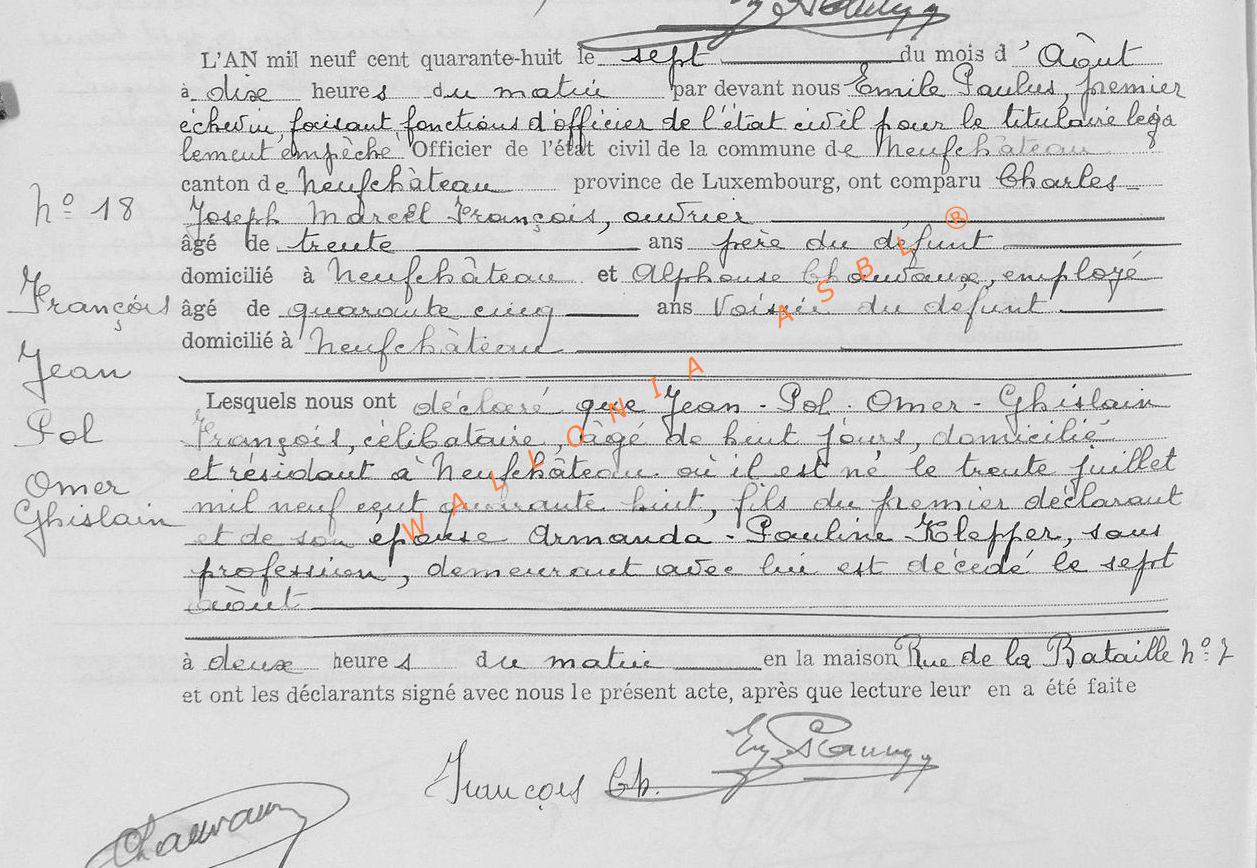 L'AN mil neuf cent quarante-huit le sept du mois d'Août
à dix heures du matin par devant nous Emile Paulus, premier
échevin faisant fonctions d'officier de l'état civil pour le titulaire léga
lement empêché Officier de l'état civil de la commune de Neufchâteau
canton de Neufchâteau province de Luxembourg, ont comparu Charles
Nº 18
Joseph Marcel François, ouvrier
âgé de trente ans père du défunt
domicilié à Neufchâteau et Alphonse Chauvaux, employé
François
âgé de quarante cinq ans Voisin du défunt
domicilié à Neufchâteau
Jean
Lesquels nous ont déclaré que Jean-Pol-Omer-Ghislain
Pol
François, célibataire, âgé de huit jours, domicilié
et résidant à Neufchâteau où il est né le trente juillet
Omer
mil neuf cent quarante huit, fils du premier déclarant
Ghislain
et de son épouse Armanda-Pauline Klepper, sans
profession, demeurant avec lui est décédé le sept
août
à deux heures du matin en la maison Rue de la Bataille Nº 7
et ont les déclarants signé avec nous le présent acte, après que lecture leur en a été faite
François Ch.
Chauvaux
WALLONIA ASBL ®